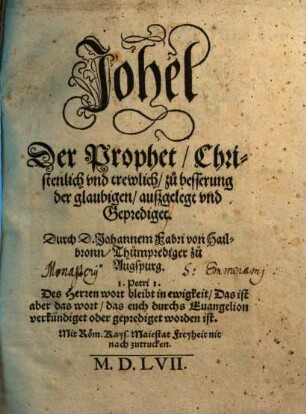 Johel
Der Prophet / Chri-
stenlich vnd trewlich / zů besserung
der glaubigen / außgelegt vnd
Geprediget.
Durch D. Johannem Fabri von Hail-
bronn / Thůmprediger zů
Augspurg.
Monasterij S. Emmerami
1. Petri 1.
Des Herren wort bleibt in ewigkeit / Das ist
aber das wort / das euch durchs Euangelion
verkündiget oder geprediget worden ist.
Mit Röm. Kays. Maiestat Freyheit nit
nach zutrucken.
M. D. LVII.